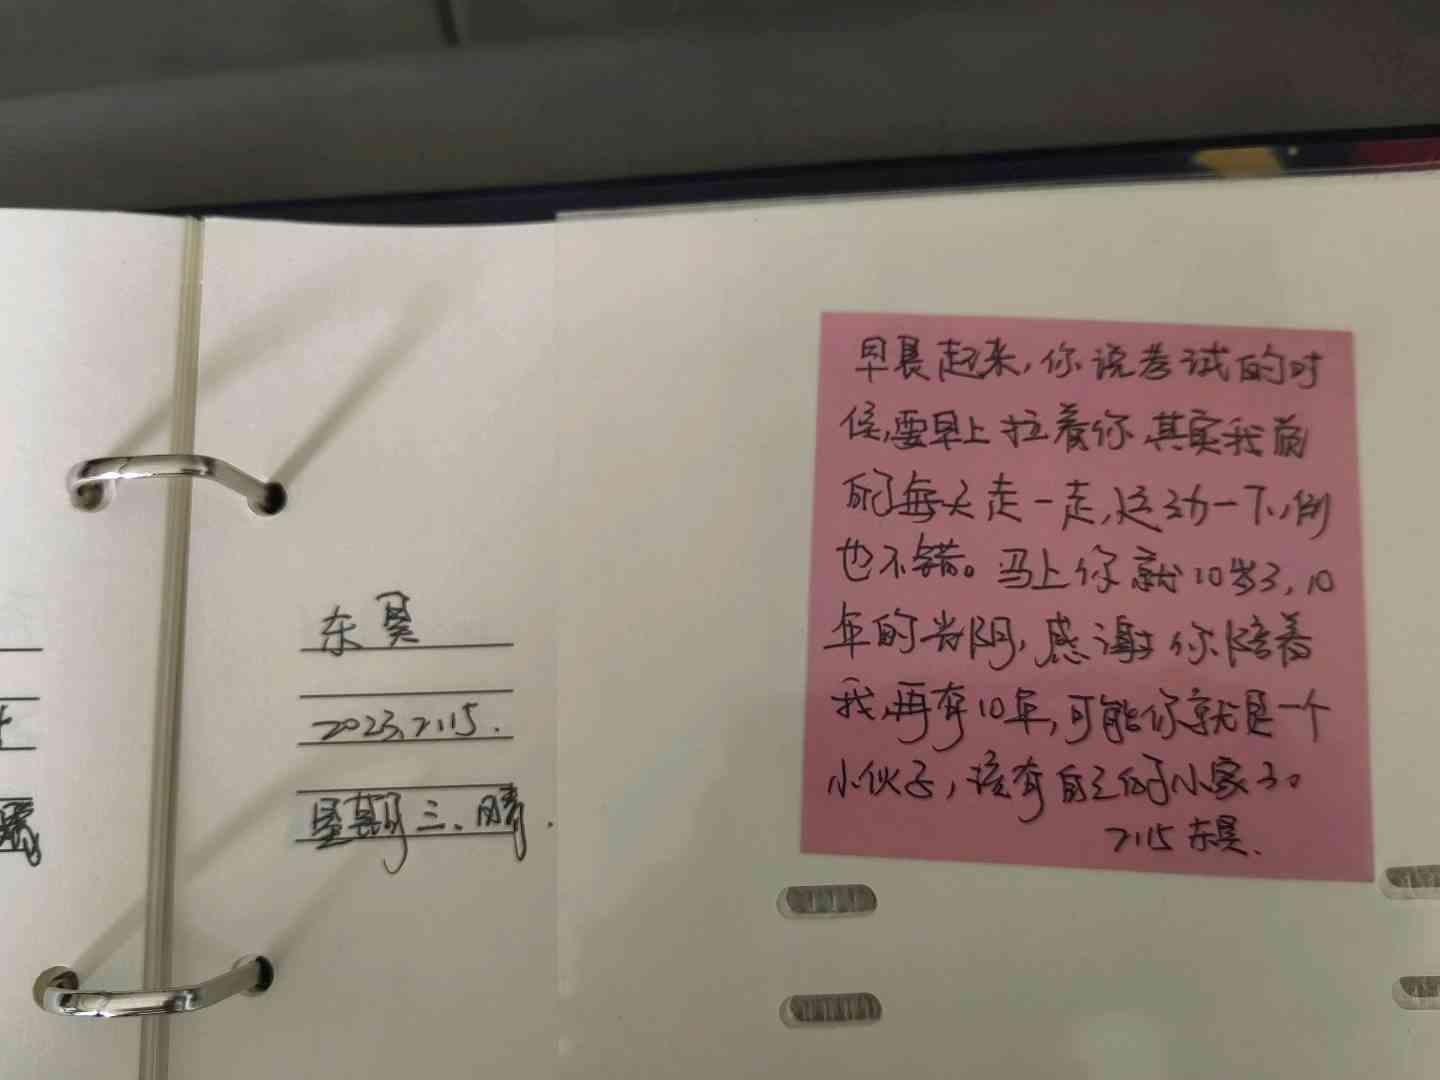 东昊
2023.7.15.
星期三、晴.
早晨起来,你说考试的时
候,要早上拉着你,其实我俩
每天走一走,运动一下,倒
也不错。马上你就10岁了,10
年的光阴,感谢你陪着
我,再有10年,可能你就是一个
小伙子,该有自己的小家了。
7.15 东昊.